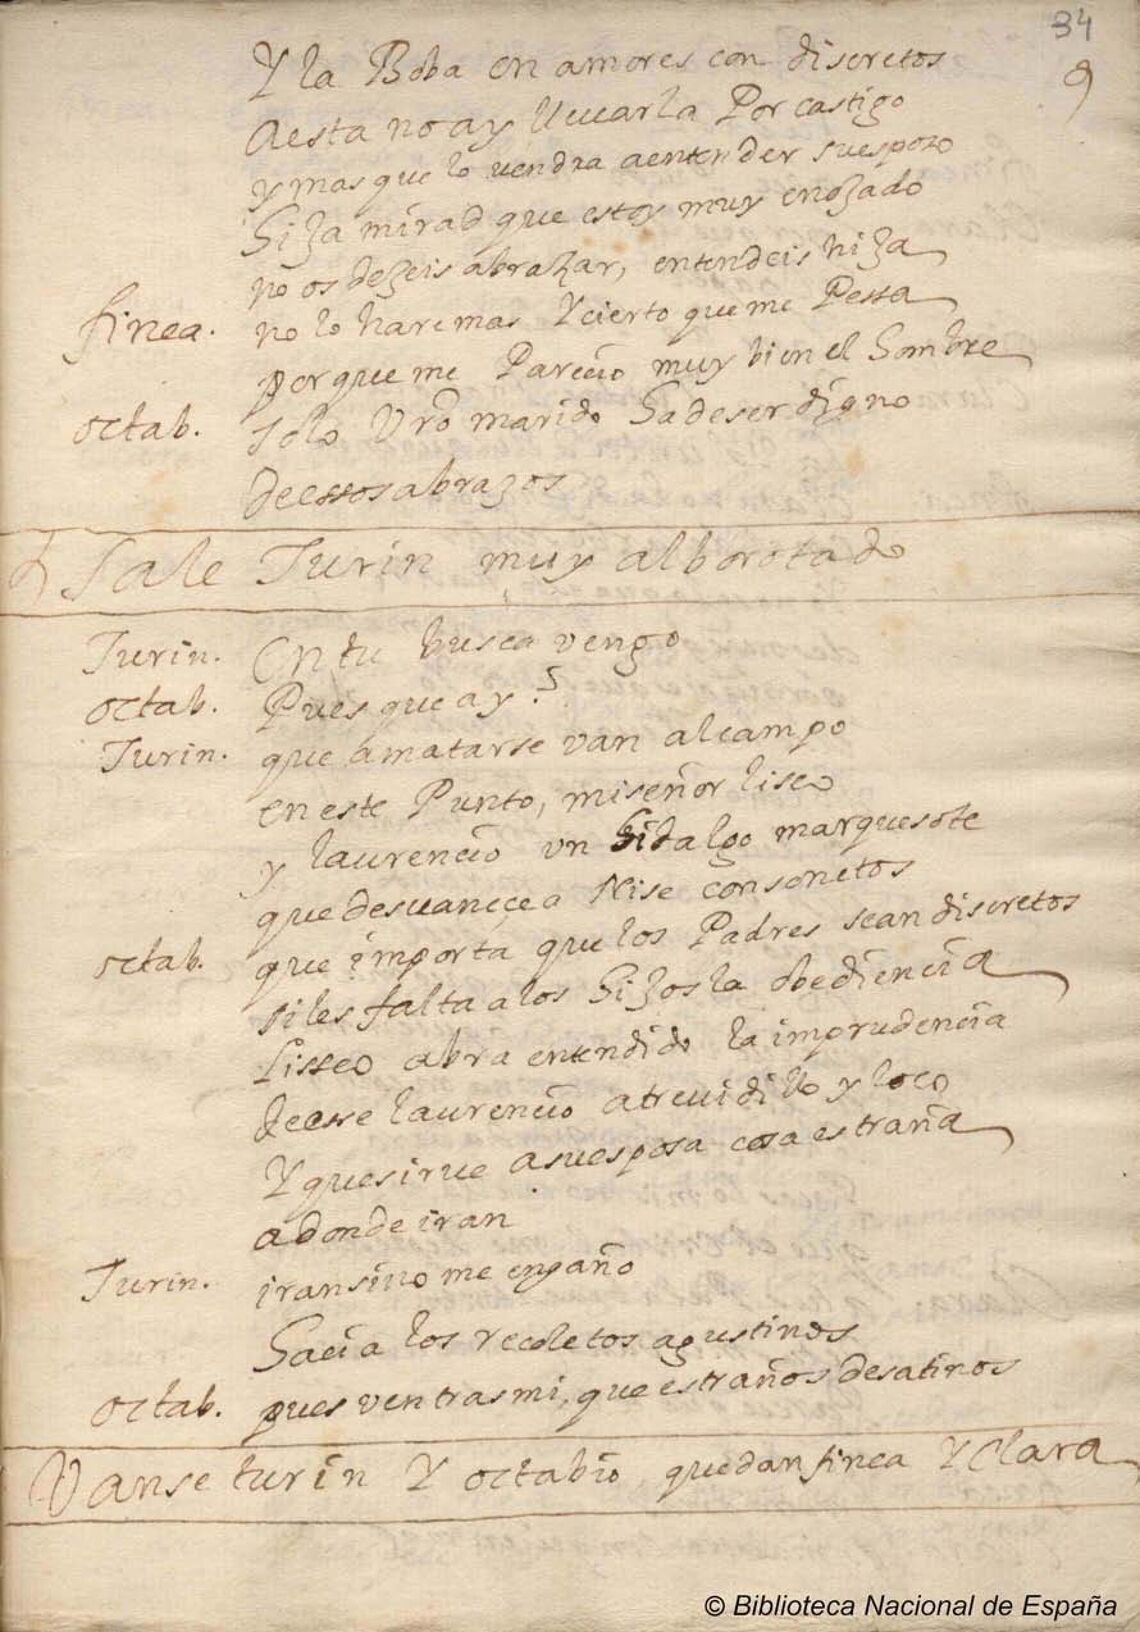 34
9
Y la Boba en amores con discretos
Aesta no ay lleuarla Por castigo
y mas que lo vendra aentender su esposo
hija mirad que estoy muy enojado
no os dejeis abrazar, entendeis hija
finea. no lo hare mas Y cierto que me Pessa
porque me Parecio muy bien el hombre
octab. solo Vro marido ha de ser digno
de essos abrazos
Sale Turin muy alborotado
Turin. En tu busca vengo
octab. Pues que ay?
Turin. que amatarse van al campo
en este Punto, mi señor liseo
y laurencio vn hidalgo marquesote
que desuanece a Nise con sonetos
octab. que importa que los Padres sean discretos
si les falta a los hijos la obediencia
Lisseo abra entendido la imprudencia
de esse laurencio atreuidillo y loco
Y que sirue a su esposa cosa estraña
adonde iran
Turin. iran si no me engaño
hacia los recoletos agustinos
octab. pues ven tras mi, que estraños desatinos
Vanse turin Y octabio quedan finea Y Clara
© Biblioteca Nacional de España